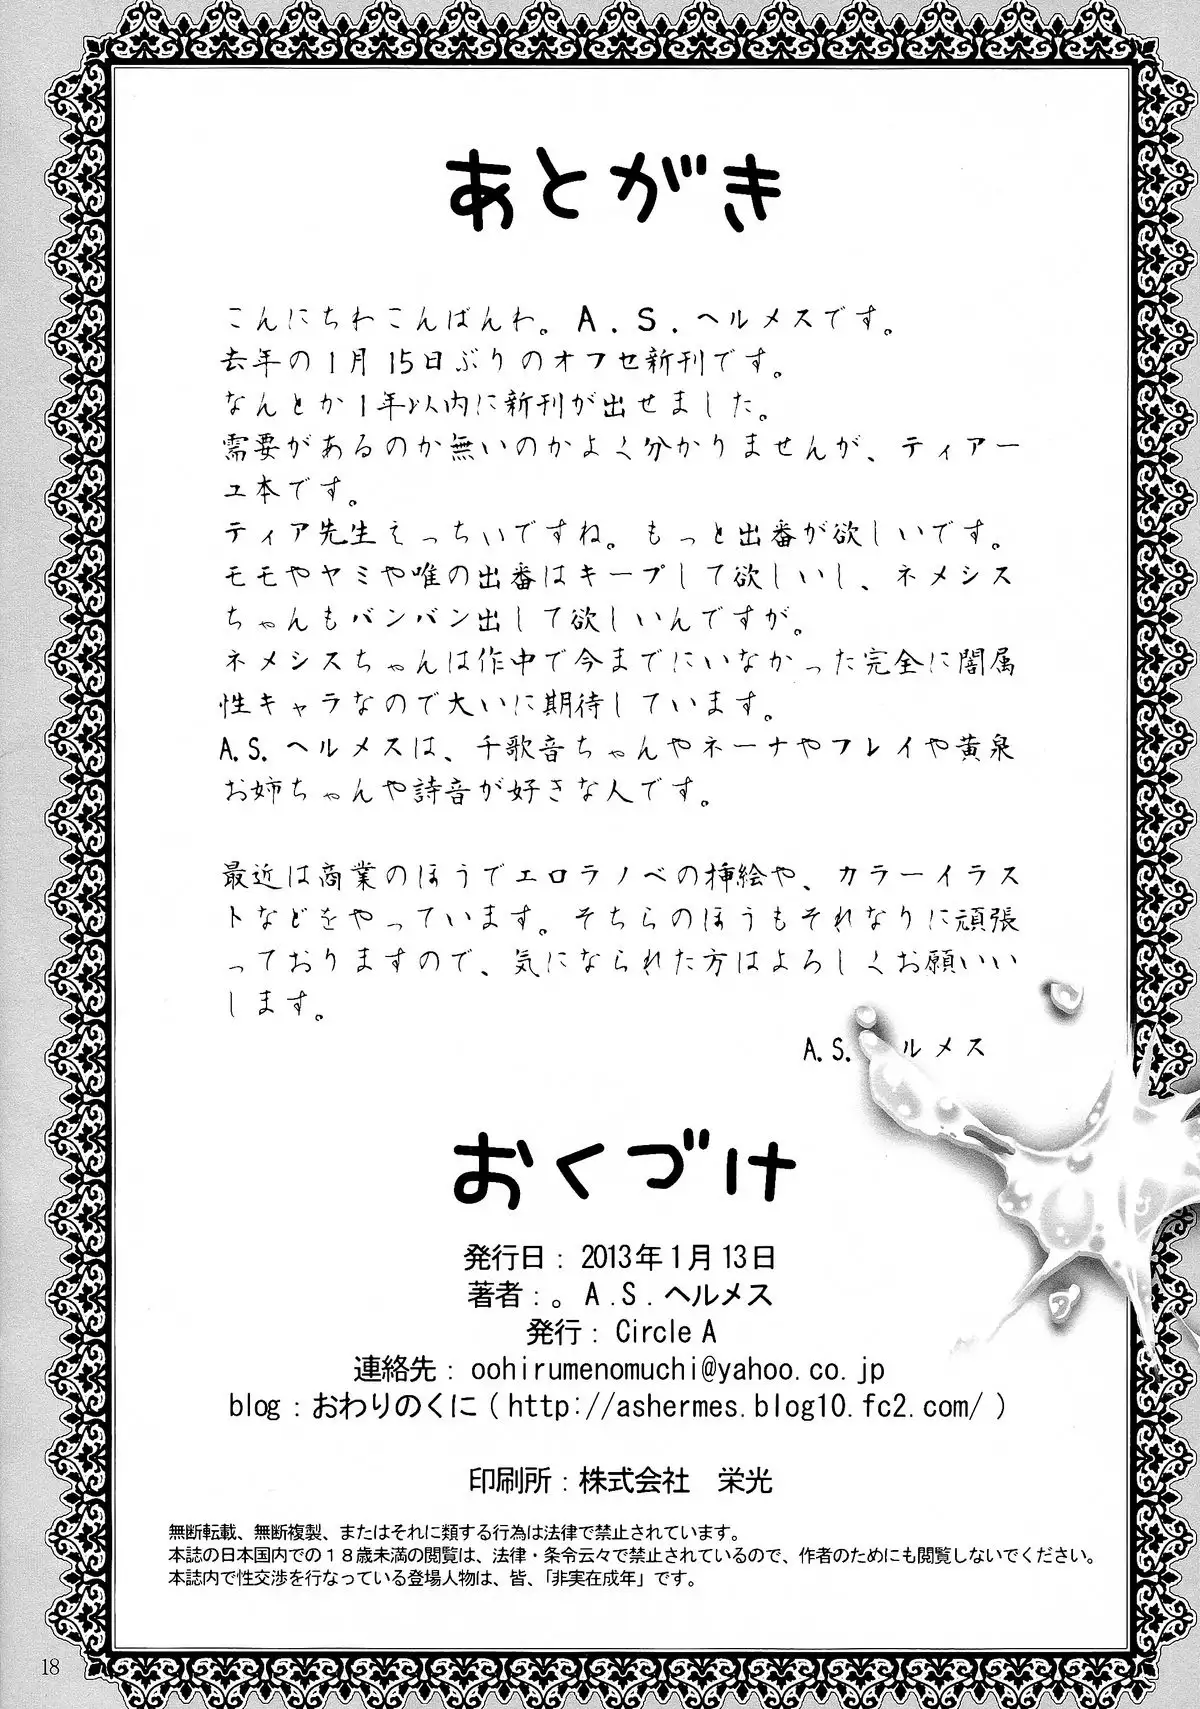 あとがき
こんにちわこんばんわ。A.S.ヘルメスです。
去年の1月15日ぶりのオフセ新刊です。
なんとか1年以内に新刊が出せました。
需要があるのか無いのかよく分かりませんが、ティアー
ユ本です。
ティア先生えっちぃですね。もっと出番が欲しいです。
モモやヤミや唯の出番はキープして欲しいし、ネメシス
ちゃんもバンバン出して欲しいんですが。
ネメシスちゃんは作中で今までにいなかった完全に闇属
性キャラなので大いに期待しています。
A.S.ヘルメスは、千歌音ちゃんやネーナやフレイや黄泉
お姉ちゃんや詩音が好きな人です。
最近は商業のほうでエロラノベの挿絵や、カラーイラス
トなどをやっています。そちらのほうもそれなりに頑張
っておりますので、気になられた方はよろしくお願いい
します。
A.S.ヘルメス
おくづけ
発行日：2013年1月13日
著者：。A.S.ヘルメス
発行：Circle A
連絡先：oohirumenomuchi@yahoo.co.jp
blog：おわりのくに(http://ashermes.blog10.fc2.com/)
印刷所：株式会社　栄光
無断転載、無断複製、またはそれに類する行為は法律で禁止されています。
本誌の日本国内での１８歳未満の閲覧は、法律・条令云々で禁止されているので、作者のためにも閲覧しないでください。
本誌内で性交渉を行なっている登場人物は、皆、「非実在成年」です。
18